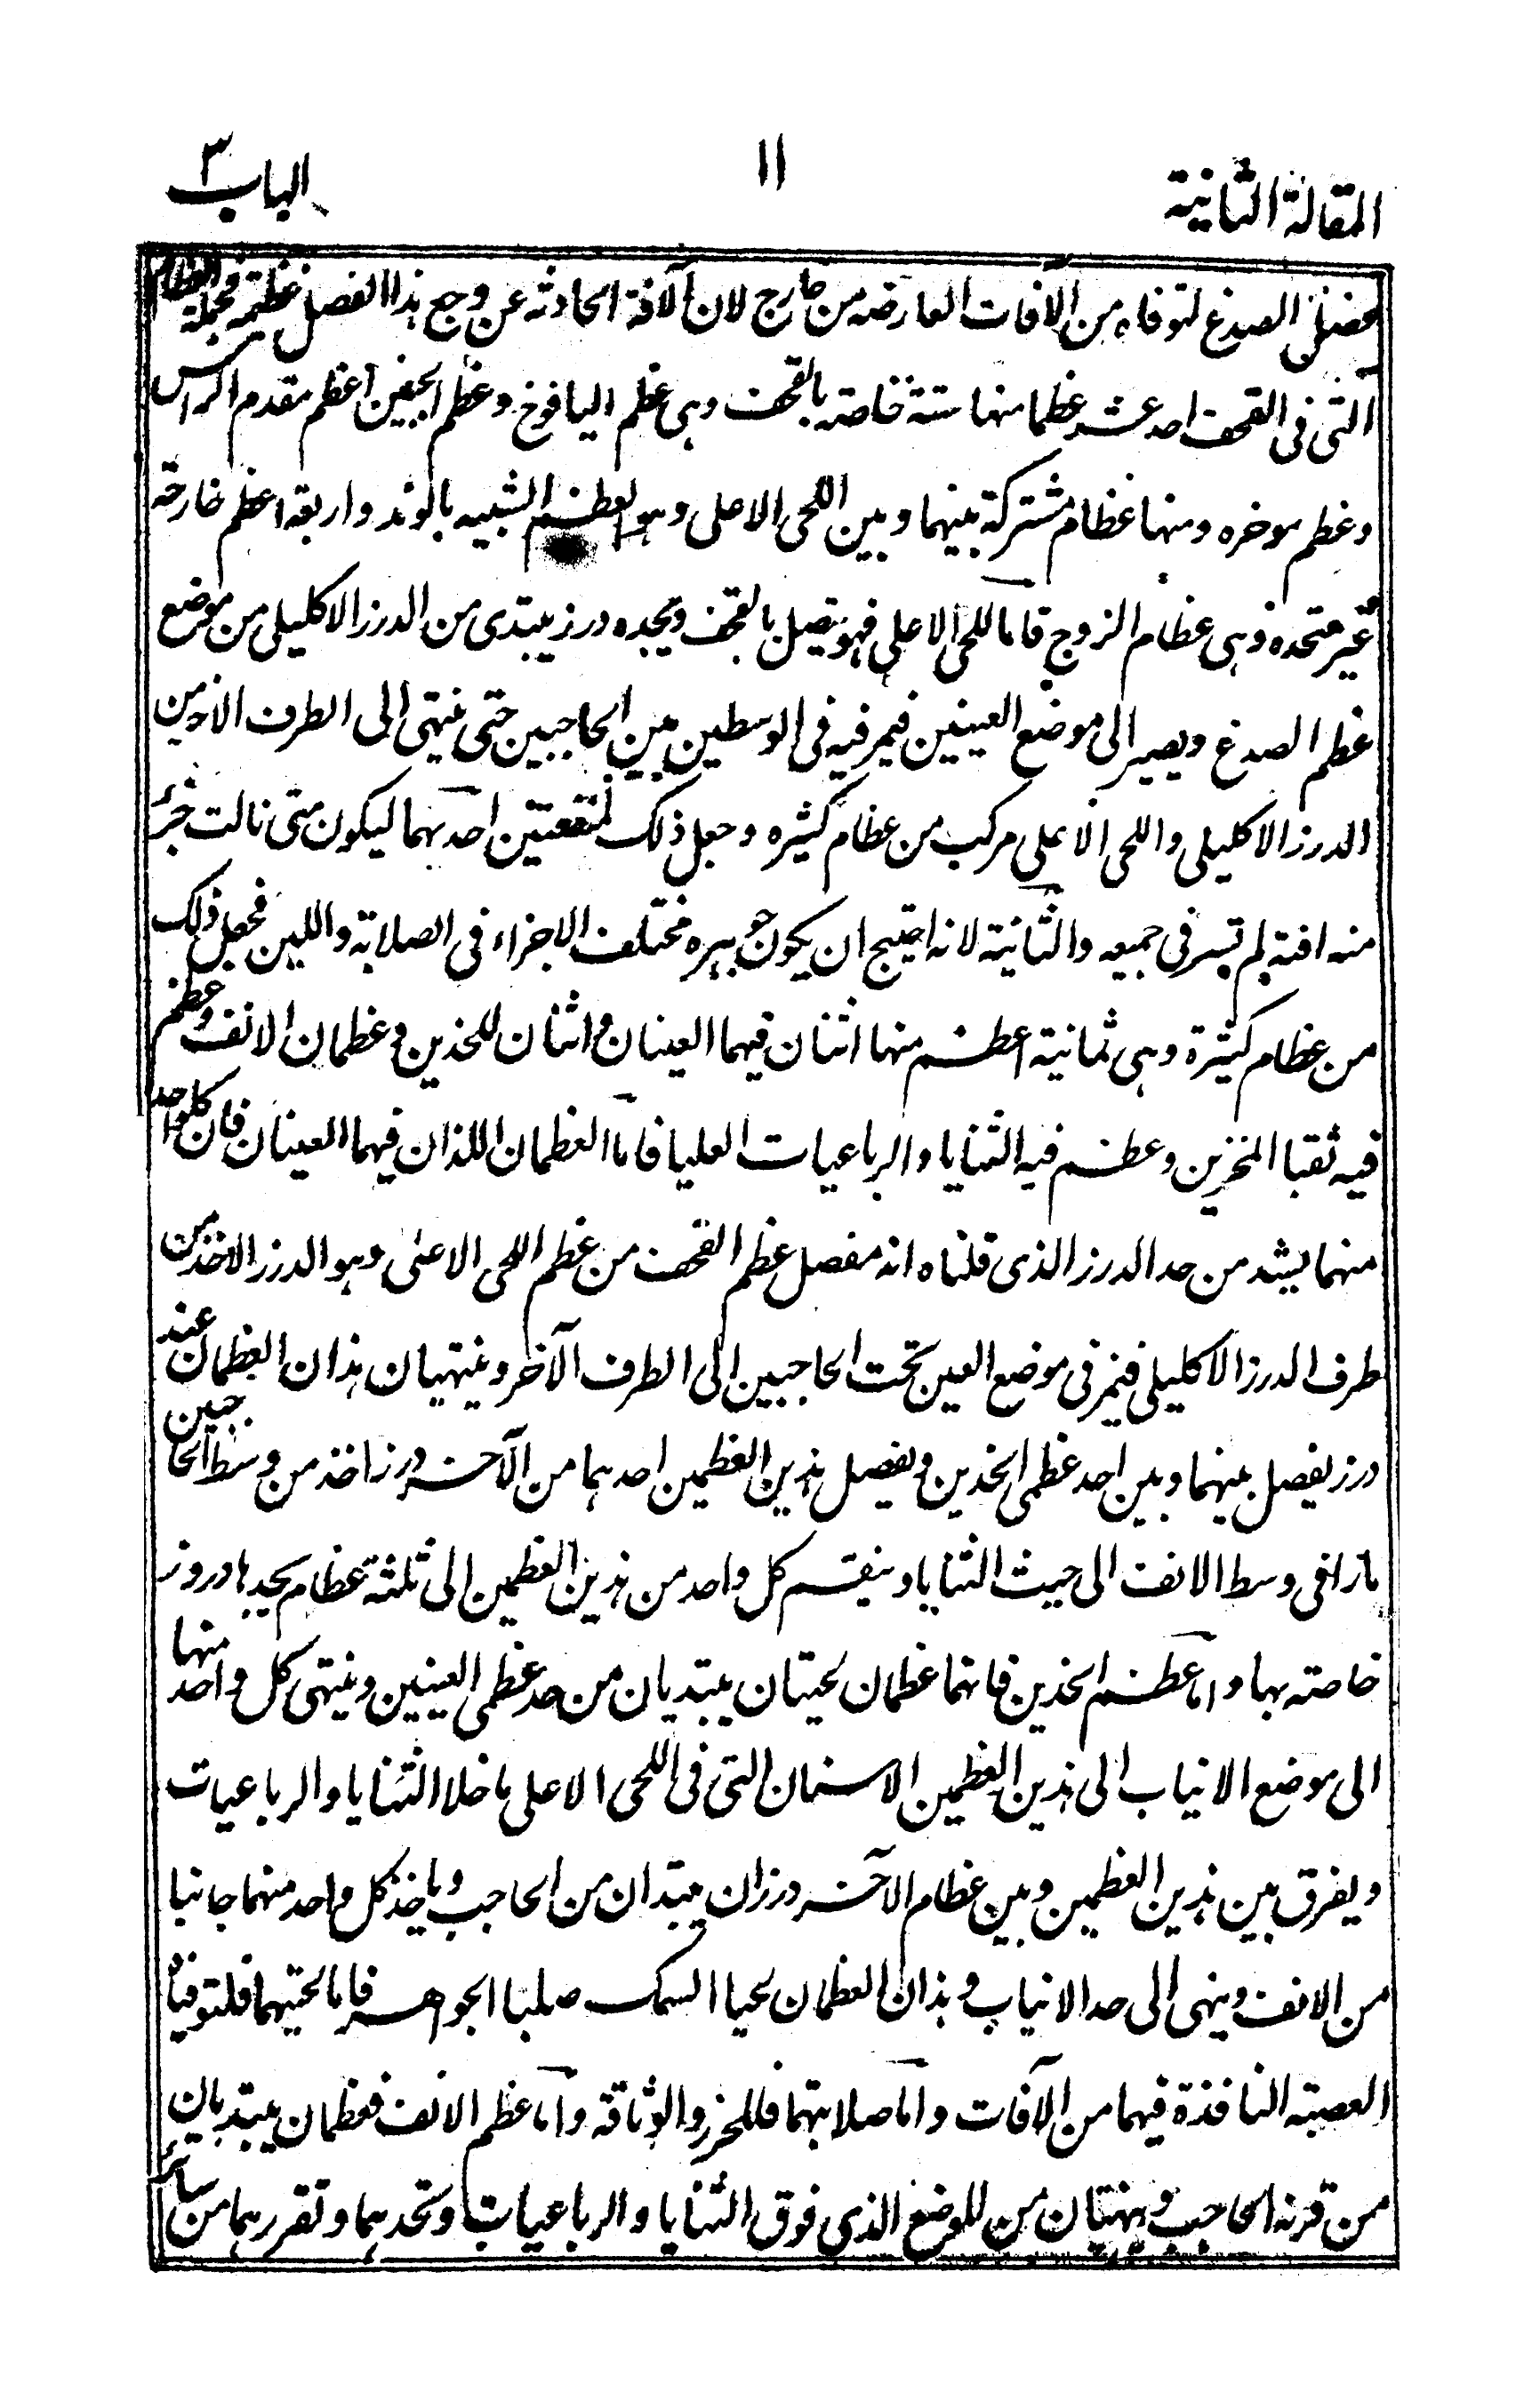 المقالة الثانية ١١ الباب ٣
عضلى الصدغ لتوفاه من الآفات العارضه من خارج لان الآفة الحادثه عن وجع هذا الفصل عظيمه وجملة العظام
التى فى القحف احد عشر عظما منها ستة خاصة بالقحف وهى عظم اليافوخ وعظم الجبين اعظم مقدم الراس
وعظم موخره ومنها عظام مشتركة بينهما وبين اللحى الاعلى وهو العظم الشبيه بالوتد واربعة اعظم خارجة
غير متحده وهى عظام الزوج فاما اللحى الاعلى فهو يتصل بالقحف ويحده درز يبتدى من الدرز الاكليلى من موضع
عظم الصدغ ويصير الى موضع العينين فيمر فيه فى الوسطين بين الحاجبين حتى ينتهى الى الطرف الاخر من
الدرز الاكليلى واللحى الاعلى مركب من عظام كثيره وجعل ذلك لمنفعتين احدهما ليكون متى نالت جزء
منه افة لم تسر فى جميعه والثانية لانه احتيج ان يكون جوهره مختلف الاجزاء فى الصلابة واللين فجعل ذلك
من عظام كثيرة وهى ثمانية اعظم منها اثنان فيهما العينان واثنان للخدين وعظمان الانف وعظم
فيه ثقبا المنخرين وعظم فيه الثنايا والرباعيات العليا فاما العظمان اللذان فيهما العينان فان كلواحد
منهما يشد من حد الدرز الذى قلناه انه مفصل عظم القحف من عظم اللحى الاعلى وهو الدرز الاخذ من
طرف الدرز الاكليلى فيمر فى موضع العين تحت الحاجبين الى الطرف الآخر وينتهيان هذان العظمان عند
درز يفصل بينهما وبين احد عظمى الخدين ويفصل هذين العظمين احدهما من الآخر درز اخذ من وسط الحاجبين
مارا فى وسط الانف الى حيث الثنايا وينقسم كل واحد من هذين العظمين الى ثلثة عظام يحدها دروز
خاصة بها واما عظم الخدين فانهما عظمان لحيتان يبتديان من حد عظمى العينين وينتهى كل واحد منها
الى موضع الانياب الى هذين العظمين الاسنان التى فى اللحى الاعلى ما خلا الثنايا والرباعيات
ويفرق بين هذين العظمين وبين عظام الآخر درزان يبتدان من الحاجب وياخذ كل واحد منهما جانبا
من الانف وينهى الى حد الانياب وهذان العظمان لحيا السمك صلبا الجوهر فاما لحيتهما فلتوفيا
العصبة النافذة فيهما من الآفات واما صلابتهما فللحرز والوثاقة واما عظم الانف فعظمان يبتديان
من قرنه الحاجب وينهتان من الموضع الذى فوق الثنايا والرباعيات وتحدهما وتقررهما من سائر